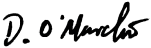 D. O'Murchú